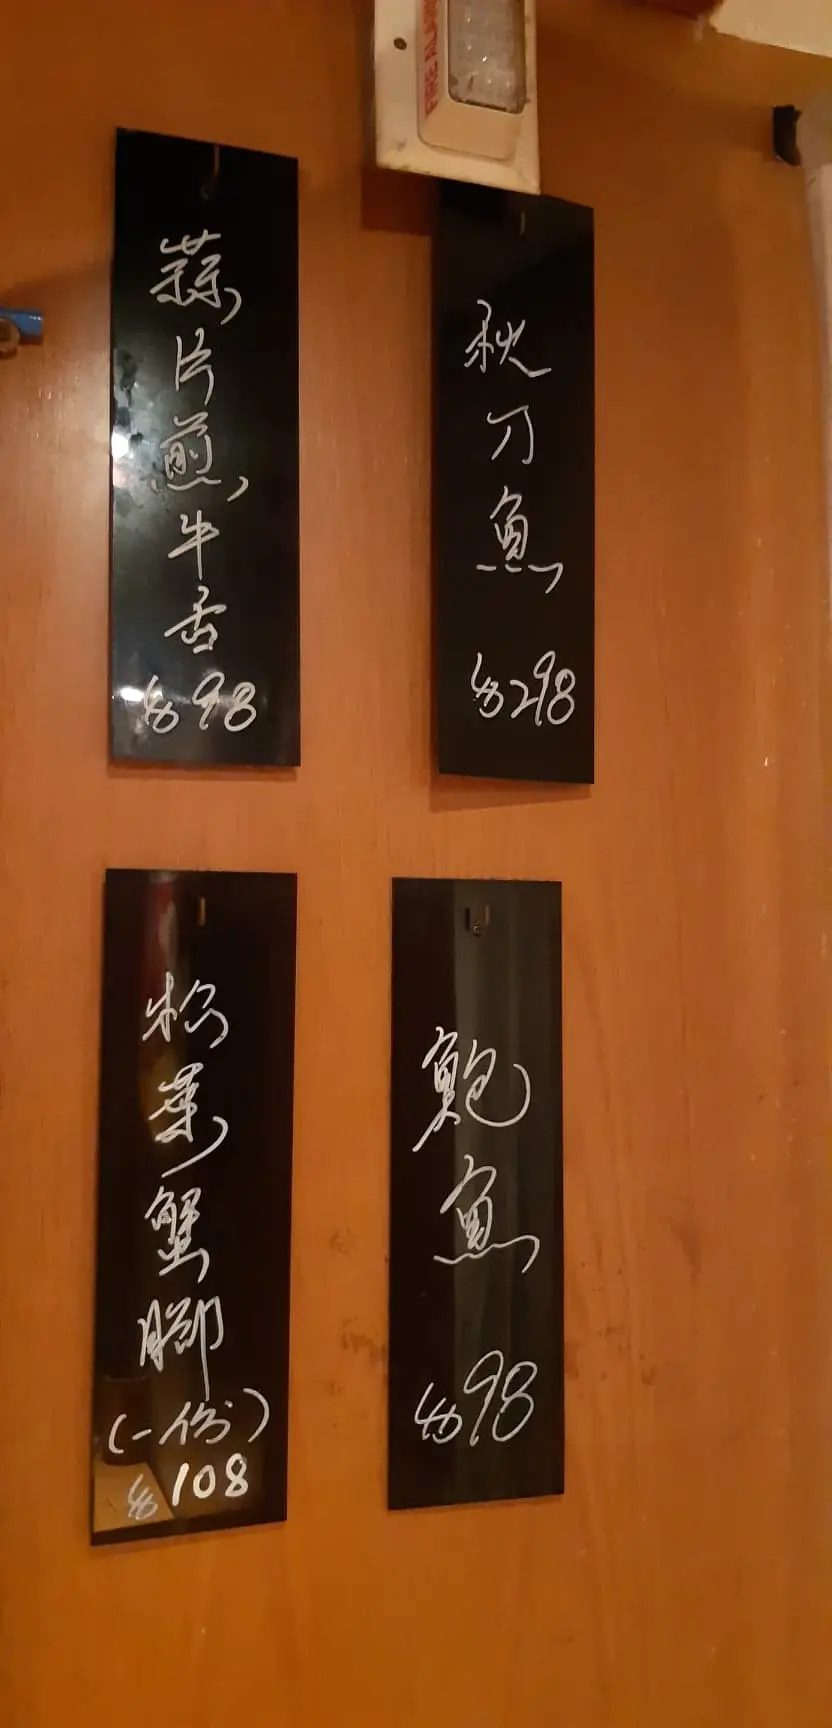 FIRE ALARM
蒜片煎牛舌
$98
秋刀魚
$298
松葉蟹腳
(一份)
$108
鮑魚
$98